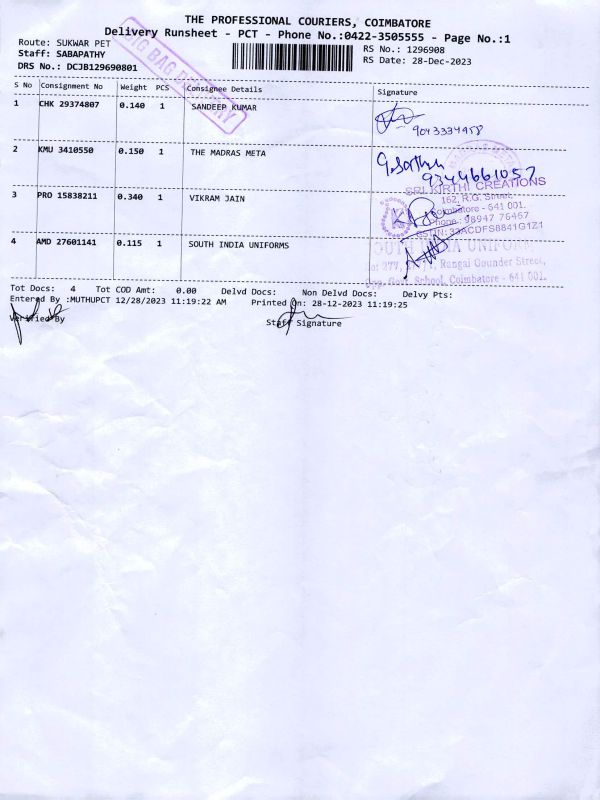 THE PROFESSIONAL COURIERS, COIMBATORE
Delivery Runsheet - PCT - Phone No.:0422-3505555 - Page No.:1
Route: SUKWAR PET
Staff: SABAPATHY
DRS No.: DCJB129690801
RS No.: 1296908
RS Date: 28-Dec-2023
BIG BAG DELIVERY
S No Consignment No Weight PCS Consignee Details Signature
1 CHK 29374807 0.140 1 SANDEEP KUMAR
9043334958
2 KMU 3410550 0.150 1 THE MADRAS META
9344661057
SRI KIRTHI CREATIONS
3 PRO 15838211 0.340 1 VIKRAM JAIN
162, R.G. Street,
Coimbatore - 641 001.
Phone : 98947 76467
GSTIN: 33ACDFS8841G1Z1
4 AMD 27601141 0.115 1 SOUTH INDIA UNIFORMS
SOUTH INDIA UNIFORMS
Rangai Gounder Street,
Opp. Govt. School, Coimbatore - 641 001.
Tot Docs: 4 Tot COD Amt: 0.00 Delvd Docs: Non Delvd Docs: Delvy Pts:
Entered By :MUTHUPCT 12/28/2023 11:19:22 AM Printed On: 28-12-2023 11:19:25
Verified By Staff Signature